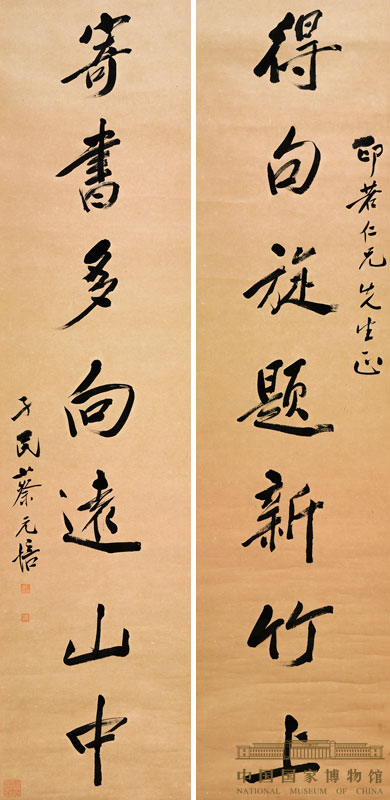 印若仁兄先生正
得句旋題新竹上
寄書多向遠山中
孑民蔡元培
中国国家博物馆
NATIONAL MUSEUM OF CHINA